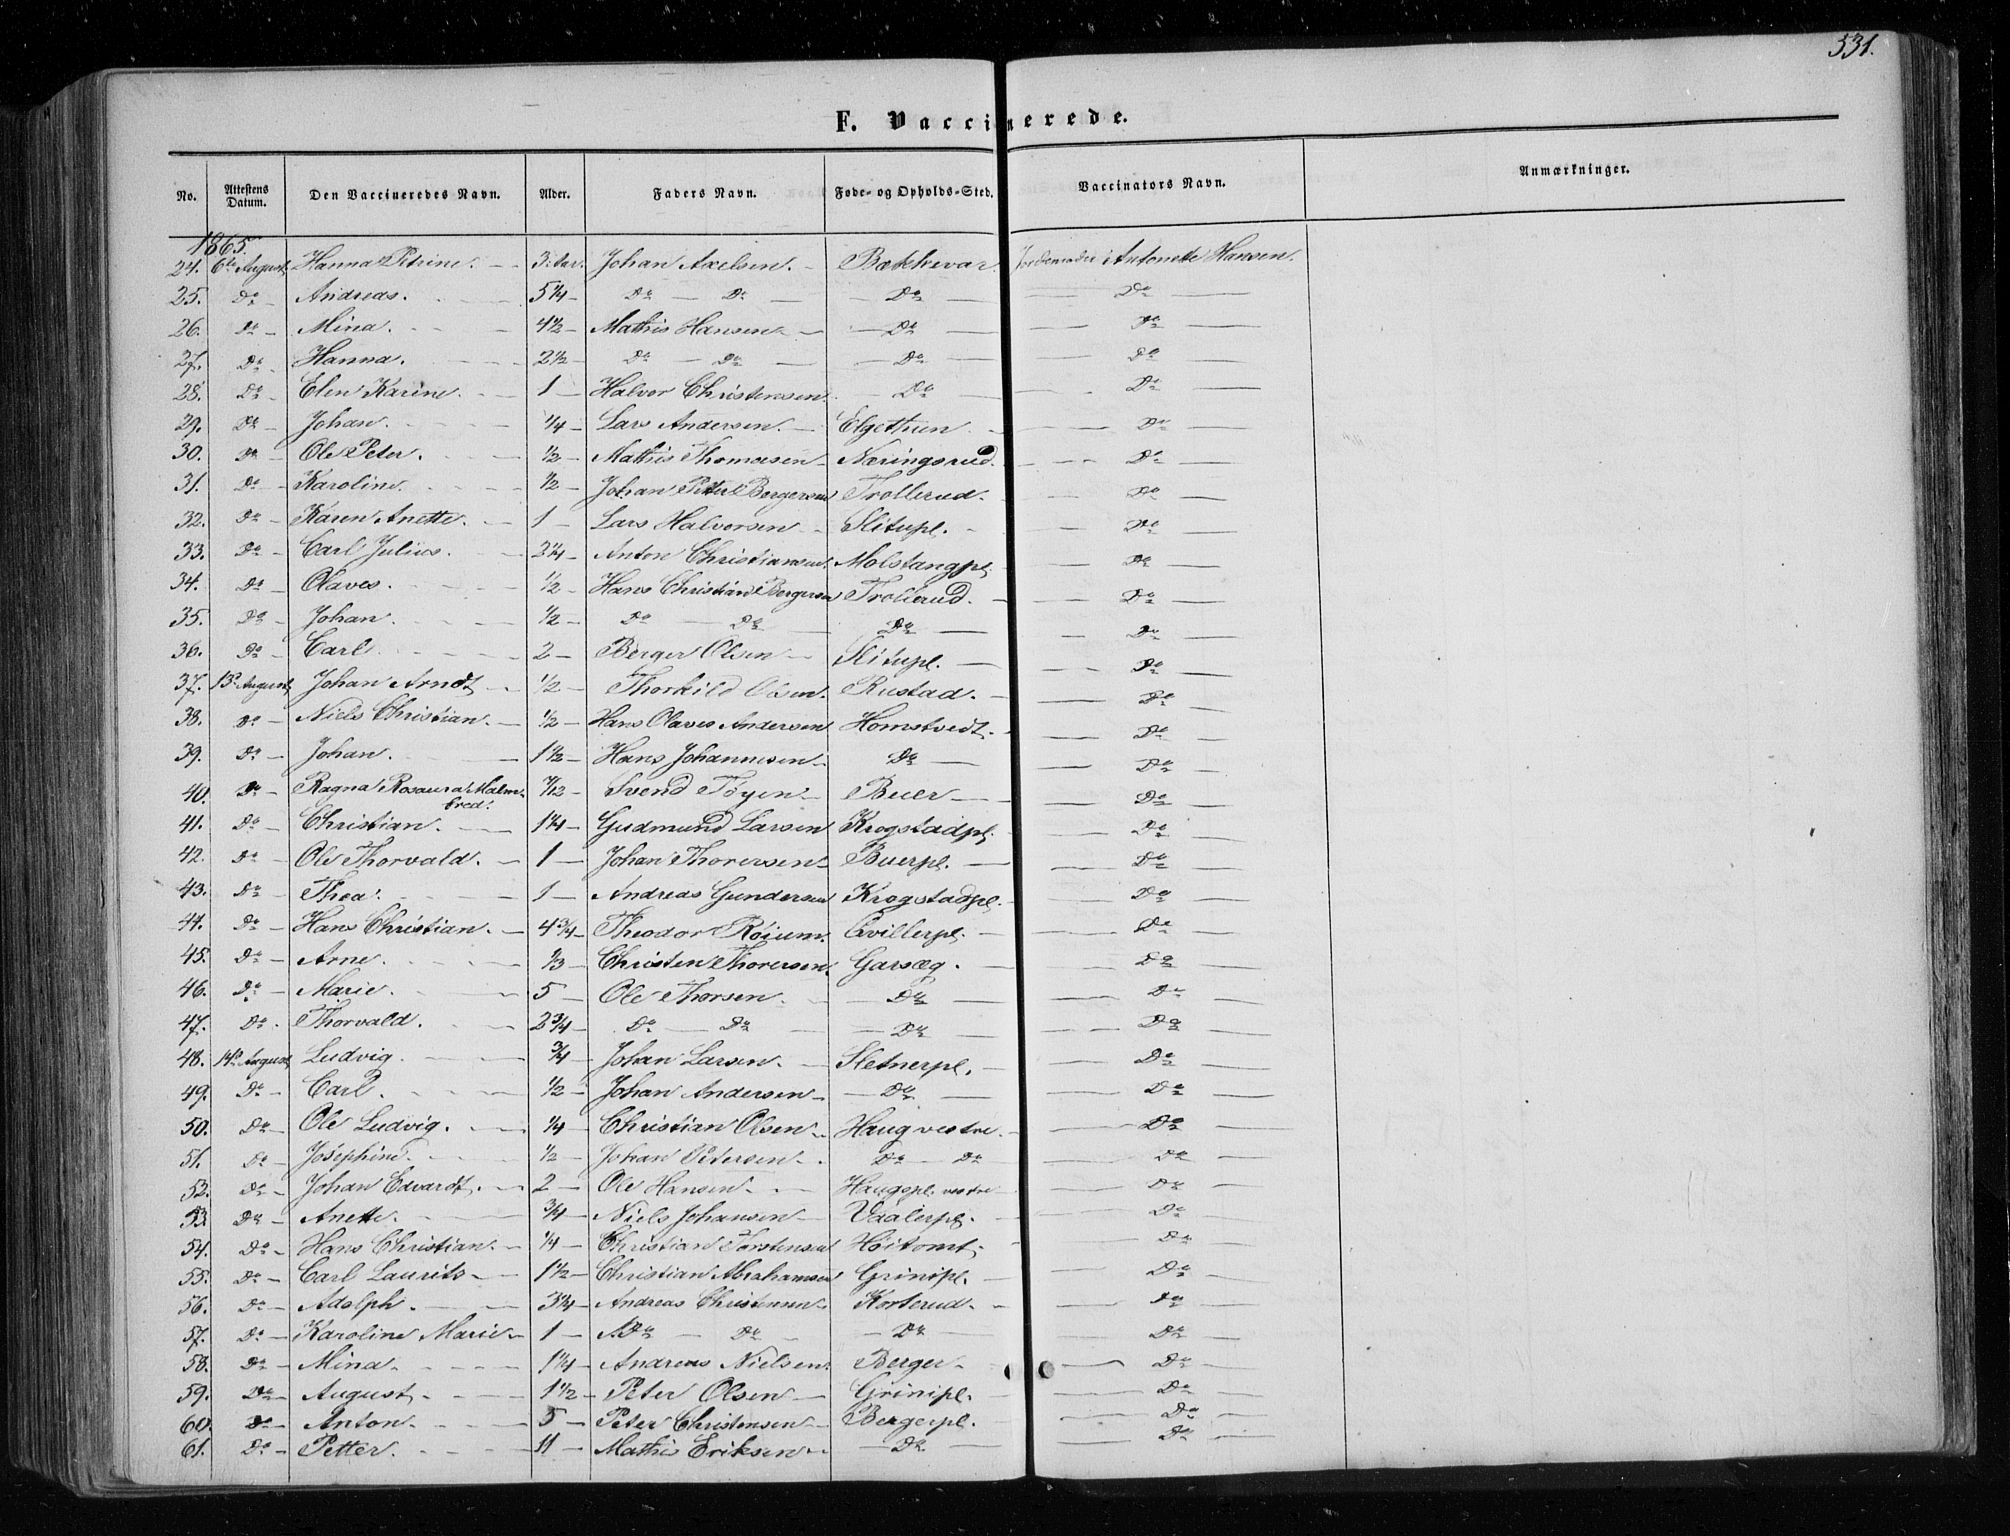 531.
F. Vaccinerede.
No. Attestens Datum. Den Vaccineredes Navn. Alder. Faders Navn. Føde- og Opholds-Sted. Vaccinators Navn. Anmærkninger.
1865.
24. 6te August Hanna Petrine. 3 Aar. Johan Axelsen. Bækkevar. Jordemoder Antonette Hansen.
25. Do Andreas. 5 1/4 Do Do Do Do
26. Do Mina. 4 1/2 Mathis Hansen Do Do
27. Do Hanna. 2 1/2 Do Do Do Do
28. Do Elen Karine. 1 Halvor Christensen. Do Do
29. Do Johan. 1/4 Lars Andersen. Elgethun Do
30. Do Ole Peter. 1/2 Mathis Thomesen Næringsrud. Do
31. Do Karoline. 1/2 Johan Petter Borgersen Trollerud. Do
32. Do Karen Anette. 1 Lars Halvorsen Slitupl. Do
33. Do Carl Julius. 2 1/4 Anton Christiansen. Molstangpl. Do
34. Do Olaves. 1/2 Hans Christian Bergersen Trollerud. Do
35. Do Johan. 1/2 Do Do Do Do
36. Do Carl. 2 Berger Olsen Slitupl. Do
37. 13de August Johan Arndt 1/2 Thorkild Olsen. Rustad. Do
38. Do Niels Christian. 1/2 Hans Olaves Andersen Homstvedt. Do
39. Do Johan. 1 1/2 Hans Johannesen Do Do
40. Do Ragna Rosaura Malm- /12 Svend Töyen Buer Do
bred.
41. Do Christian. 1 1/4 Gudmund Larsen Krogstadpl. Do
42. Do Ole Thorvald. 1 Johan Thoresen Buerpl. Do
43. Do Thea. 1 Andreas Gundersen Krogstadpl. Do
44. Do Hans Christian. 4 3/4 Theodor Röium. Qvillerpl. Do
45. Do Arne. 1/3 Christen Thoresen. Garsæg. Do
46. Do Marie. 5 Ole Thorsen. Do Do
47. Do Thorvald. 2 3/4 Do Do Do Do
48. 14de August Ludvig. 3/4 Johan Larsen. Sletnerpl. Do
49. Do Carl. 1/2 Johan Andersen Do Do
50. Do Ole Ludvig. 1/4 Christian Olsen Haug vestre. Do
51. Do Josephine. 1/2 Johan Petersen Do Do Do
52. Do Johan Edvardt. 2 Ole Hansen Haugspl. vestre Do
53. Do Anette. 3/4 Niels Johansen Vaalerpl. Do
54. Do Hans Christian. 1/4 Christian Torstensen Höitomt. Do
55. Do Carl Laurits 1 1/2 Christian Abrahamsen Grinipl. Do
56. Do Adolph. 3 3/4 Andreas Christensen Korterud. Do
57. Do Karoline Marie 1 Do Do Do Do
58. Do Mina. 1 1/4 Andreas Nielsen. Berger. Do
59. Do August. 1 1/2 Peter Olsen Grinipl. Do
60. Do Anton. 5 Peter Christensen Bergerpl. Do
61. Do Petter. 11 Mathis Eriksen Do Do